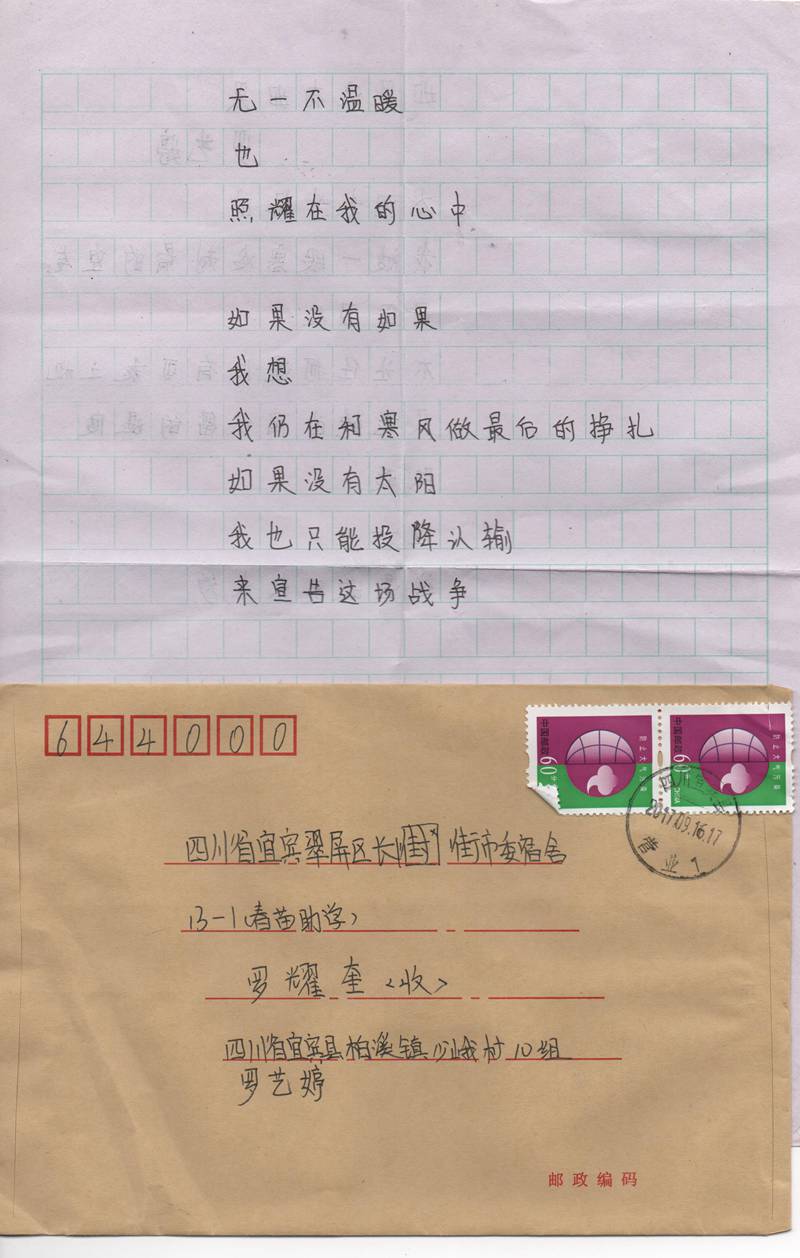 无一不温暖
也
照耀在我的心中
如果没有如果
我想
我仍在和寒风做最后的挣扎
如果没有太阳
我也只能投降认输
来宣告这场战争
644000
中国邮政
60分
CHINA
防止大气污染
中国邮政
60分
防止大气污染
四川省
2017.09.16.17
营业
四川省宜宾翠屏区长街 街市委宿舍
13-1(春苗助学)
罗耀奎(收)
四川省宜宾县柏溪镇少峨村10组
罗艺婷
邮政编码